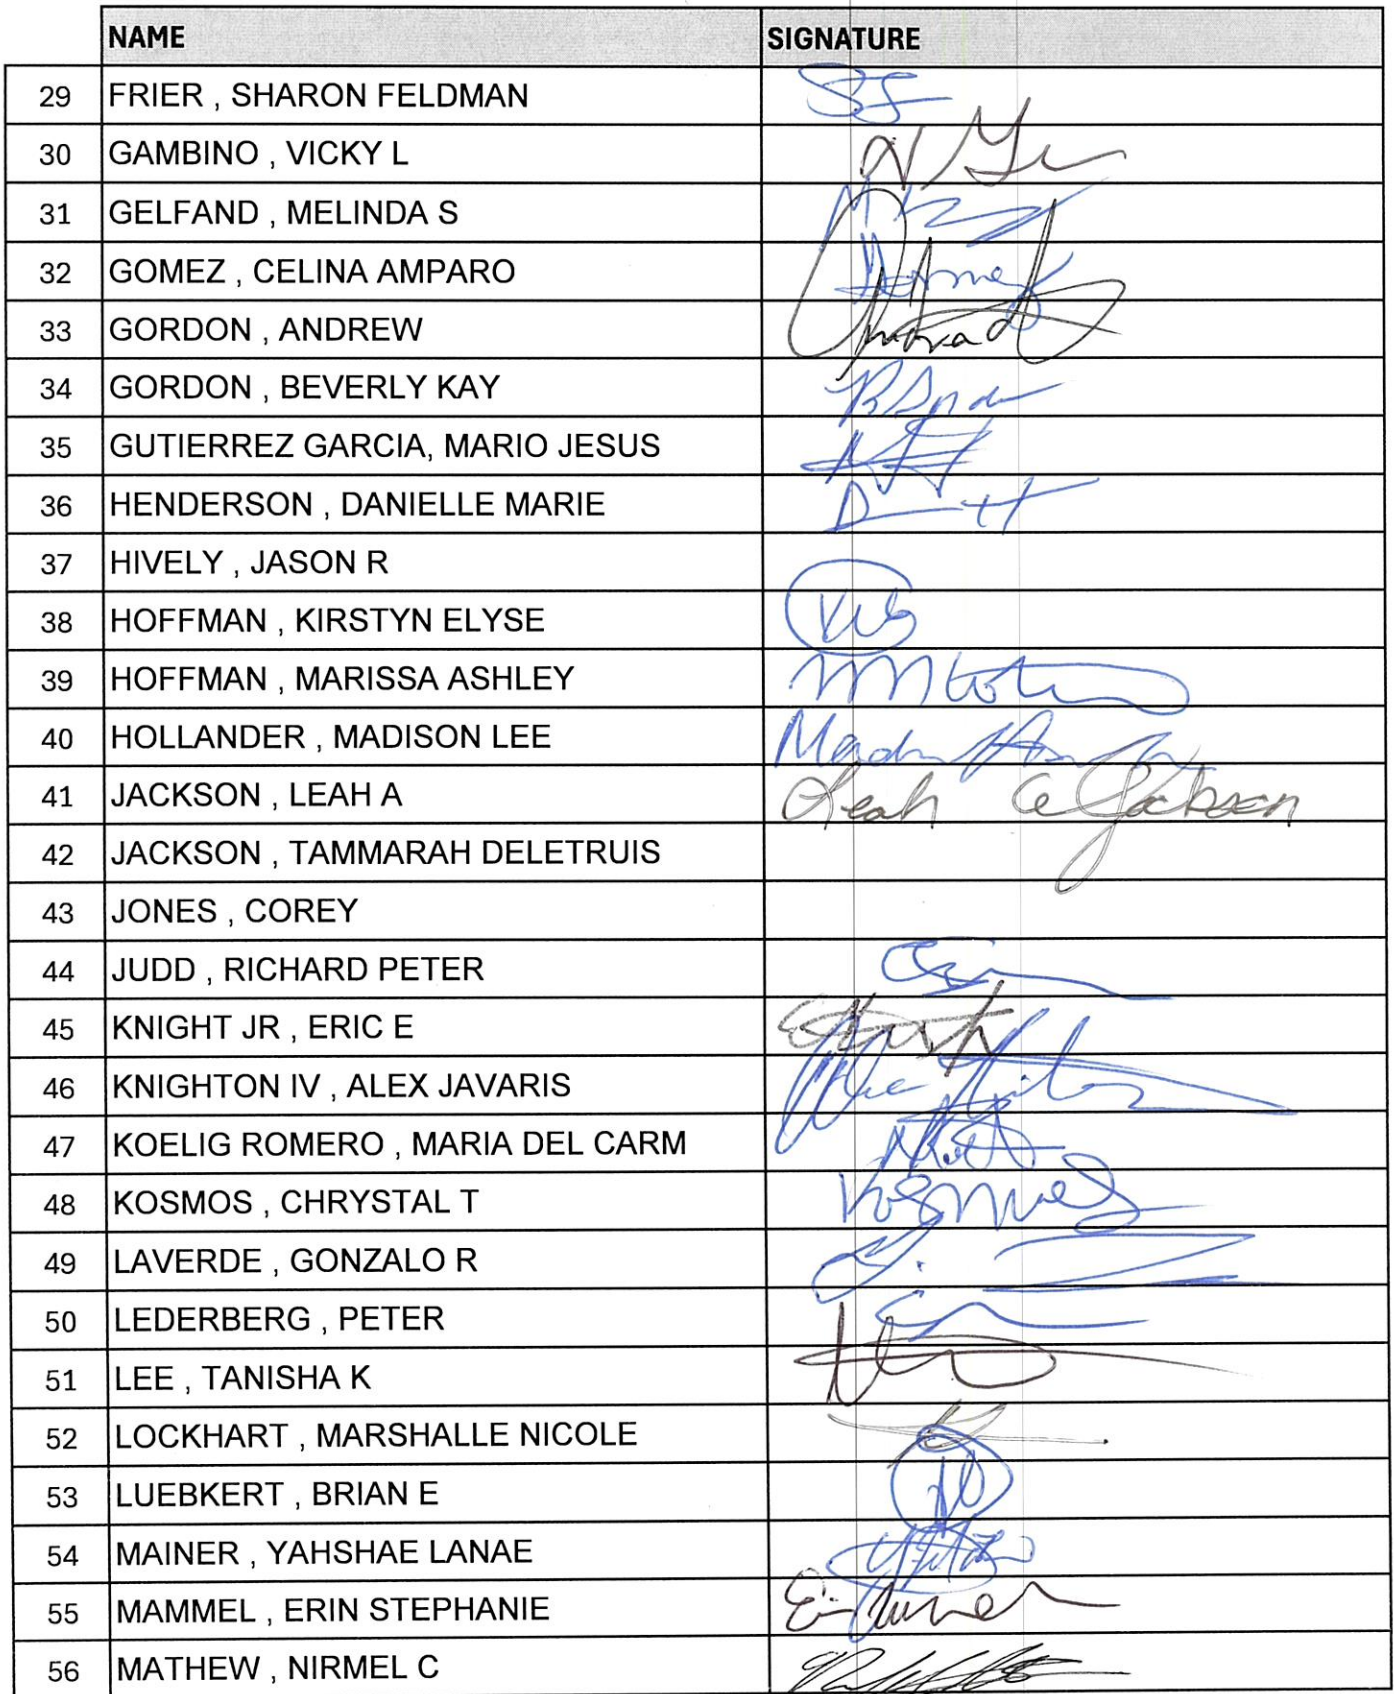 NAME SIGNATURE
29 FRIER , SHARON FELDMAN SF
30 GAMBINO , VICKY L
31 GELFAND , MELINDA S
32 GOMEZ , CELINA AMPARO
33 GORDON , ANDREW
34 GORDON , BEVERLY KAY
35 GUTIERREZ GARCIA, MARIO JESUS
36 HENDERSON , DANIELLE MARIE
37 HIVELY , JASON R
38 HOFFMAN , KIRSTYN ELYSE
39 HOFFMAN , MARISSA ASHLEY
40 HOLLANDER , MADISON LEE
41 JACKSON , LEAH A Leah a Jackson
42 JACKSON , TAMMARAH DELETRUIS
43 JONES , COREY
44 JUDD , RICHARD PETER
45 KNIGHT JR , ERIC E
46 KNIGHTON IV , ALEX JAVARIS
47 KOELIG ROMERO , MARIA DEL CARM
48 KOSMOS , CHRYSTAL T
49 LAVERDE , GONZALO R
50 LEDERBERG , PETER
51 LEE , TANISHA K
52 LOCKHART , MARSHALLE NICOLE
53 LUEBKERT , BRIAN E
54 MAINER , YAHSHAE LANAE
55 MAMMEL , ERIN STEPHANIE
56 MATHEW , NIRMEL C